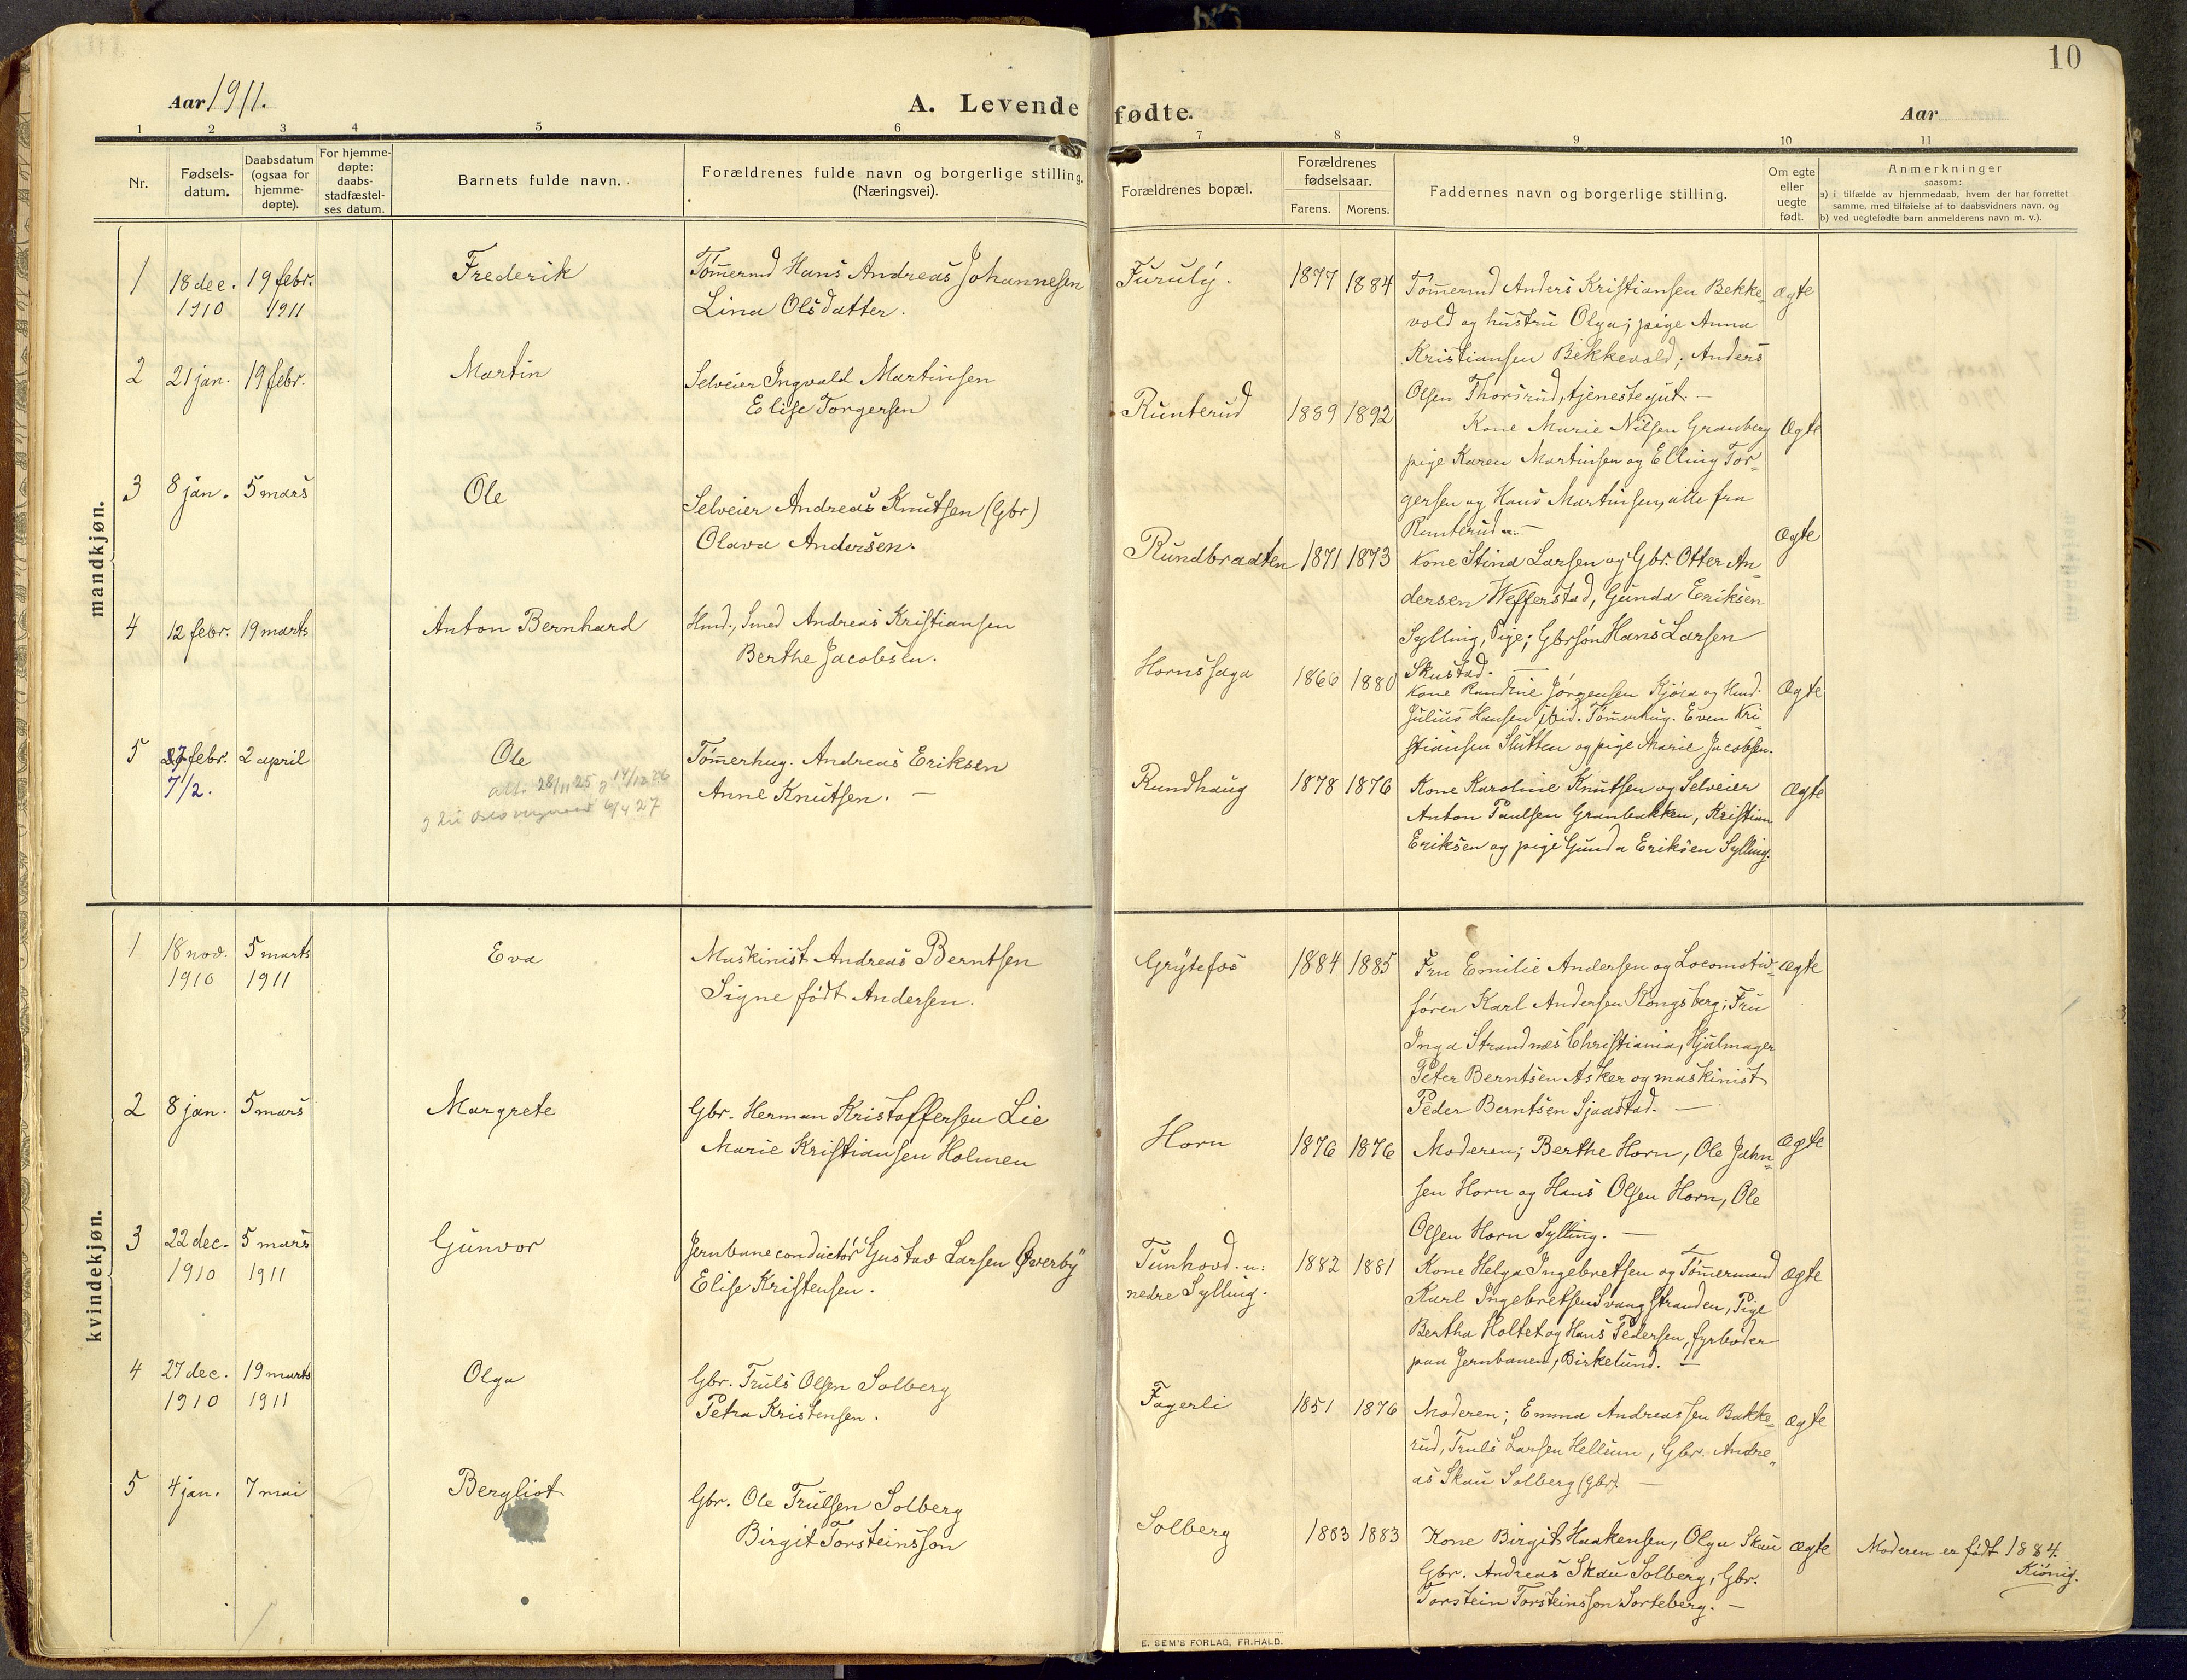 10
Aar 1911.
A. Levende fødte.
Aar
1 2 3 4 5 6 7 8 9 10 11
Nr.
Fødsels-
datum.
Daabsdatum
(ogsaa for
hjemme-
døpte).
For hjemme-
døpte:
daabs-
stadfæstel-
ses datum.
Barnets fulde navn.
Forældrenes fulde navn og borgerlige stilling.
(Næringsvei).
Forældrenes bopæl.
Forældrenes
fødselsaar.
Farens. Morens.
Faddernes navn og borgerlige stilling.
Om egte
eller
uegte
født.
Anmerkninger
saasom:
a) i tilfælde av hjemmedaab, hvem der har forrettet
samme, med tilføielse af to daabsvidners navn, og
b) ved uegtefødte barn anmelderens navn m. v.).
mandkjøn.
1 18 dec. 19 febr. Frederik
1910 1911
Tømermd Hans Andreas Johannesen
Lina Olsdatter.
Furuly. 1877 1884
Tømermd Anders Kristiansen Bekke-
vold og hustru Olga; pige Anna
Kristiansen Bekkevold, Anders
Olsen Thorsrud, tjenestegut. —
Ægte
2 21 jan. 19 febr. Martin
Selveier Ingvald Martinsen
Elise Torgersen
Runterud 1889 1892
Kone Marie Nilsen Granberg
pige Karen Martinsen og Elling Tor-
gersen og Hans Martinsen, alle fra
Runterud. —
Ægte
3 8 jan. 5 mars Ole
Selveier Andreas Knutsen (Gbr)
Olava Andersen.
Rundbraaten 1871 1873
Kone Stina Larsen og Gbr. Otter An-
dersen Wefferstad, Gunda Eriksen
Sylling, Pige; Gbrsøn Hans Larsen
Skustad. —
Ægte
4 12 febr. 19 marts Anton Bernhard
Hmd., Smed Andreas Kristiansen
Berthe Jacobsen.
Hornssaga 1866 1880
Kone Randine Jørgensen Kjøsa og Hmd.
Julius Hansen ibid. Tømerhug. Even Kri-
stiansen Slutten og pige Marie Jacobsen.
Ægte
5 27 febr. 2 april Ole
7/2.
att. 28/11 25 9 14/12 26
6/4 27
Tømerhug. Andreas Eriksen
Anne Knutsen. —
Rundhaug 1878 1876
Kone Karoline Knutsen og Selveier
Anton Paulsen Granbakken, Kristian
Eriksen og pige Gunda Eriksen Sylling.
Ægte
kvindekjøn.
1 18 nov. 5 marts Eva
1910 1911
Maskinist Andreas Berntsen
Signe født Andersen.
Grytefos 1884 1885
Fru Emilie Andersen og Locomotiv-
fører Karl Andersen Kongsberg; Fru
Inga Strandnæs Christiania, Hjulmager
Peter Berntsen Asker og maskinist
Peder Berntsen Sjaastad. —
Ægte
2 8 jan. 5 mars Margrete
Gbr. Herman Kristoffersen Lie
Marie Kristiansen Holmen
Horn 1876 1876
Moderen; Berthe Horn, Ole John-
sen Horn og Hans Olsen Horn, Ole
Olsen Horn Sylling. —
Ægte
3 22 dec. 5 mars Gunvor
1910 1911
Jernbaneconductør Gustav Larsen Øverby
Elise Kristensen.
Tunhovd. u:
nedre Sylling.
1882 1881
Kone Helga Ingebretsen og Tømermand
Karl Ingebretsen Svangstranden, Pige
Bertha Holtet og Hans Pedersen, fyrbøder
paa Jernbanen, Birkelund. —
Ægte
4 27 dec. 19 marts Olga
1910 1911
Gbr. Truls Olsen Solberg
Petra Kristensen.
Fagerli 1851 1876
Moderen; Emma Andreassen Bakke-
rud, Truls Larsen Hellum, Gbr. Andre-
as Skau Solberg (Gbr). —
Ægte
5 4 jan. 7 mai Bergliot
Gbr. Ole Trulsen Solberg
Birgit Torsteinsson
Solberg 1883 1883
Kone Birgit Haakensen, Olga Skau
Gbr. Andreas Skau Solberg, Gbr.
Torstein Torsteinsson Sorteberg. —
Ægte
Moderen er født 1884.
Kiønig.
E. SEM'S FORLAG, FR.HALD.